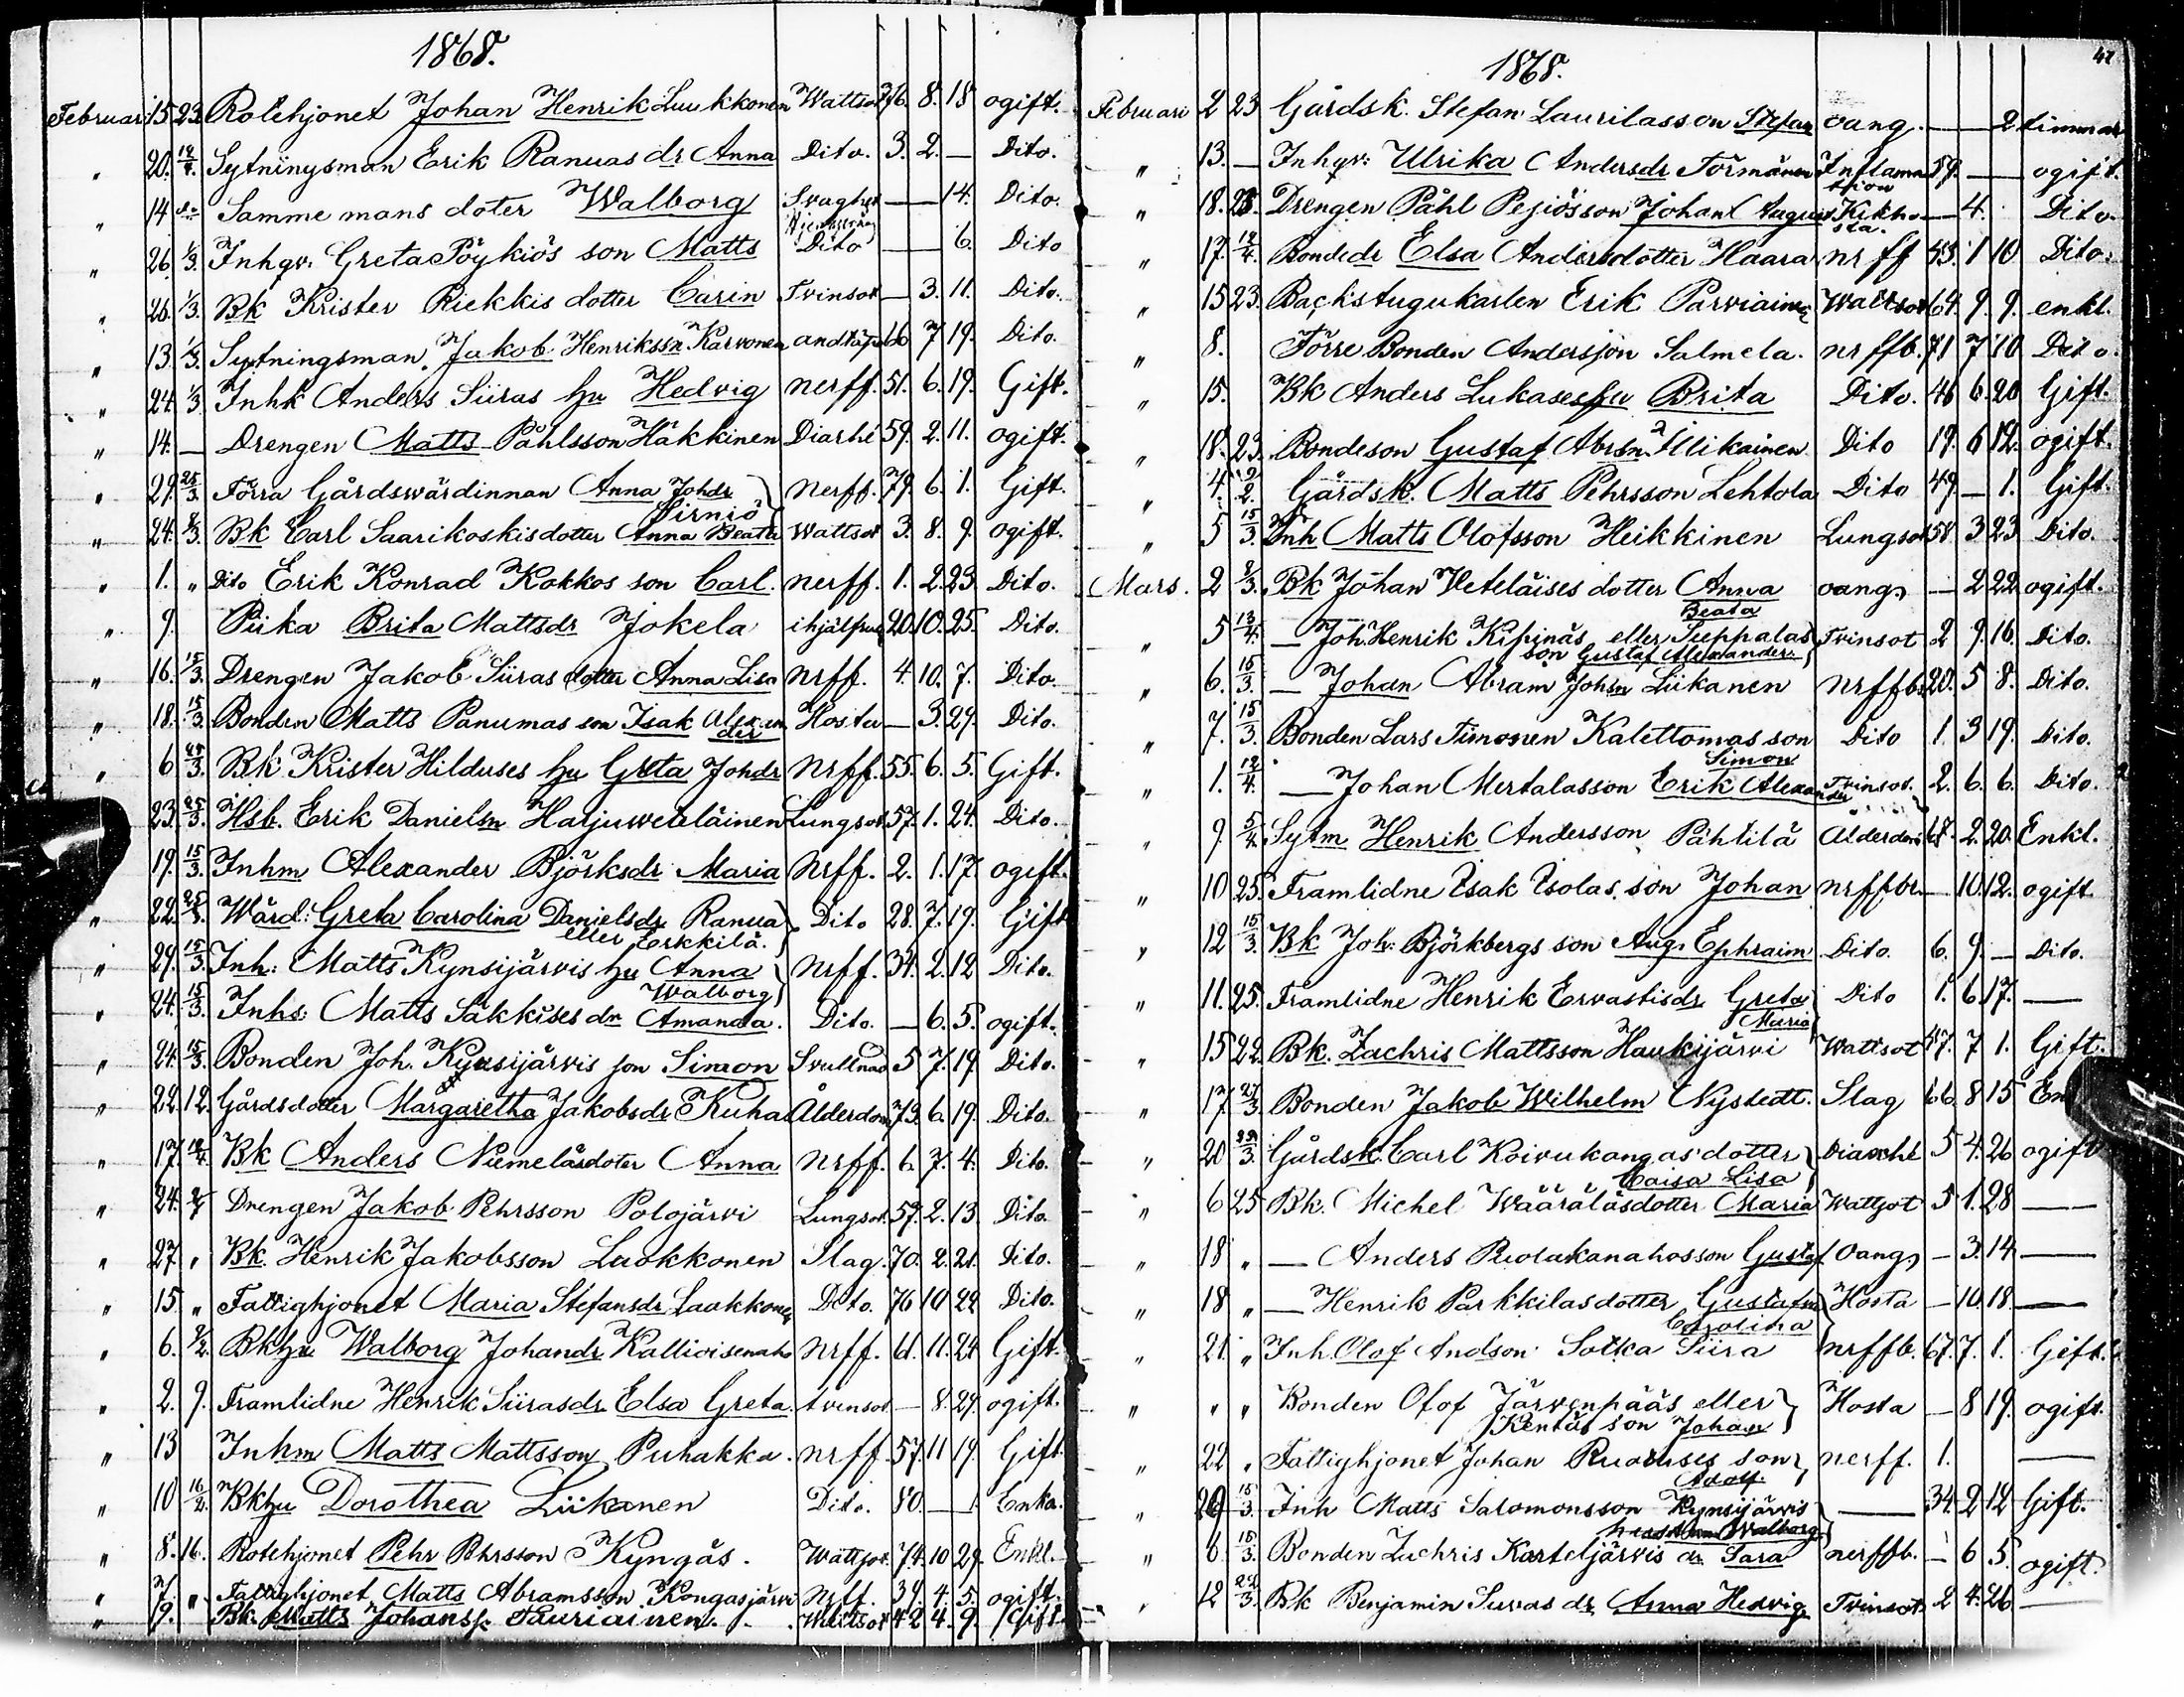 1868.
Februari 15 23. Rotehjonet Johan Henrik Luukkonen Wattsot 76. 8. 18 ogift.
" 20. 12/4. Sytningsman Erik Ranuas dr Anna Dito. 3. 2. — Dito.
" 14 do Samme mans doter Walborg Svaghet — 14. Dito.
" 26. 1/3. Inhgr. Greta Pöykiös son Matts Dito — 6. Dito
" 26. 1/3. Bk Krister Riekkis dotter Carin Tvinsot — 3. 11. Dito.
" 13. 1/3. Sytningsman Jakob Henrikssn Karvonen andtäpa 66 7 19. Dito.
" 24. 1/3. Inhk Anders Siiras hu Hedvig nerff. 51. 6. 19. Gift.
" 14. — Drengen Matts Påhlsson Häkkinen Diarhé 59. 2. 11. ogift.
" 29. 25/3. Förra Gårdswärdinnan Anna Johdr Sirniö nerff. 79. 6. 1. Gift.
" 24. 8/3. Bk Carl Saarikoskis dotter Anna Beata Wattsot 3. 8. 9. ogift.
" 1. " Dito Erik Konrad Kokkos son Carl. nerff. 1. 2. 23. Dito.
" 9. Piika Brita Mattsdr Jokela 20. 10. 25. Dito.
" 16. 15/3. Drengen Jakob Siiras dotter Anna Lisa nrff. 4. 10. 7. Dito.
" 18. 15/3. Bonden Matts Panumas son Isak Alexander Hosta — 3. 29. Dito.
" 6 25/3. Bk Krister Hilduses hu Greta Johdr nrff. 55. 6. 5. Gift.
" 23. 25/3. Hsb. Erik Danielsn Harjuweteläinen Lungsot. 57. 1. 24. Dito.
" 19. 15/3. Inhm Alexander Björksdr Maria nrff. 2. 1. 17. ogift.
" 22. 25/3. Wärd: Greta Carolina Danielsdr Ranua eller Erkkilä. Dito 28. 7. 19. Gift
" 29. 15/3. Inh: Matts Kynsijärvis hu Anna Walborg nrff. 34. 2. 12 Dito.
" 24. 15/3. Inhs: Matts Säkkises dr Amanda. Dito. — 6. 5. ogift.
" 24. 15/3. Bonden Joh. Kynsijärvis son Simon Svullnad 5 7. 19 Dito.
" 22. 12. Gårdsdotter Margaretha Jakobsdr Kuha Ålderdom 73. 6. 19. Dito.
" 17. 12/4. Bk Anders Niemeläsdoter Anna nrff. 6. 7. 4. Dito.
" 24. Drengen Jakob Pehrsson Polojärvi Lungsot. 57. 2. 13. Dito.
" 27. " Bk. Henrik Jakobsson Luokkonen Slag. 70. 2. 21. Dito.
" 15 " Fattighjonet Maria Stefansdr Laakkonen Dito. 76 10 22 Dito.
" 6. 9/2. Bkhu Walborg Johandr Kallioisenaho nrff. 61. 11. 24 Gift.
" 2. 9. Framlidne Henrik Siirasdr Elsa Greta. tvinsot. — 8. 29. ogift.
" 13 Inhm Matts Mattsson Puhakka. nrff. 57. 11 19. Gift.
" 10 16/2. Bkhu Dorothea Liikanen Dito. 80. — 1. Enka.
" 8. 16. Rotehjonet Pehr Pehrsson Kyngäs. Wattsot. 74. 10 29. Enkl.
" 7. " Fattighjonet Matts Abramsson Kongasjärvi nrff. 39. 4. 5. ogift.
" 19. Bk. Matts Johanss. Tauriainen. Wattsot 42 4. 9. Gift.
42
1868.
Februari 2 23 Gårdsk. Stefan Laurilasson Stefan oäng. — 2 timmar
" 13. — Inhgr: Ulrika Andersdr Törmänen Inflamation 59. — ogift.
" 18. 23. Drengen Påhl Pejiösson Johan August Kikhosta. — 4. Dito.
" 17. 12/4. Bondedr Elsa Andersdotter Haara nrff 43. 1 10 Dito.
" 15 23. Backstugukarlen Erik Parviainen Wattsot 64. 9. 9. enkl.
" 8. Förre Bonden Andersson Salmela. nrffb. 71 7 10 Dito.
" 15. Bk Anders Lukases hu Brita Dito. 46 6. 20 Gift.
" 18. 23. Bondeson Gustaf Abrsn Illikainen Dito 19. 6 12. ogift.
" 4. 9/2. Gårdsk. Matts Pehrsson Lehtola Dito 49. — 1. Gift.
" 5 15/3. Inh Matts Olofsson Heikkinen Lungsot 58. 3 23 Dito.
Mars. 2 8/3. Bk Johan Veteläises dotter Anna Beata oäng. — 2 22 ogift.
" 5 13/4. — Joh. Henrik Kipinäs eller Seppalas son Gustaf Alexander. Tvinsot 2 9. 16. Dito.
" 6. 15/3. — Johan Abram Johsn Liikanen nrffb. 20. 5 8. Dito.
" 7. 15/3. Bonden Lars Timonen Kalettomas son Simon Dito 1. 3 19. Dito.
" 1. 12/4. — Johan Mertalasson Erik Alexander Tvinsot. 2. 6. 6. Dito.
" 9. 5/4. Sytm Henrik Andersson Pahtila Ålderdom 67. 2. 20. Enkl.
" 10 25. Framlidne Isak Isolas son Johan nrffbr — 10. 12. ogift
" 12 15/3. Bk Joh. Björkbergs son Aug. Ephraim Dito. 6. 9. — Dito.
" 11. 25. Framlidne Henrik Ervastisdr Greta Maria Dito 1. 6. 17. —
" 15 22. Bk. Zachris Mattsson Haukijärvi Wattsot 47. 7 1. Gift.
" 17. 27/3. Bonden Jakob Wilhelm Nystedt. Slag 66. 8 15 En
" 20 22/3. Gårdsk. Carl Koivukangas dotter Caisa Lisa Diarrhé 5 4. 26 ogift
" 6 25 Bk. Michel Wääräläsdotter Maria Wattsot 5 1. 28 —
" 18 " — Anders Puolakanahosson Gustaf Oäng. — 3. 14 —
" 18 " — Henrik Parkkilasdotter Gustafva Carolina Hosta — 10. 18. —
" 21. " Inh. Olof Andson Sotka Siira nrffb. 67. 7. 1. Gift.
" " " Bonden Olof Järvenpääs eller Kentäs son Johan Hosta — 8 19. ogift.
" 22 " Fattighjonet Johan son Adolf. nerff. 1. —
" 29 15/3. Inh Matts Salomonsson Kynsijärvis hustru Walborg — 34. 2 12 Gift.
" 6 15/3. Bonden Zachris Karteljärvis dr Sara nerffb. — 6 5. ogift.
" 12 22/3. Bk Benjamin Suvas dr Anna Hedvig Tvinsot. 2 4. 26 —